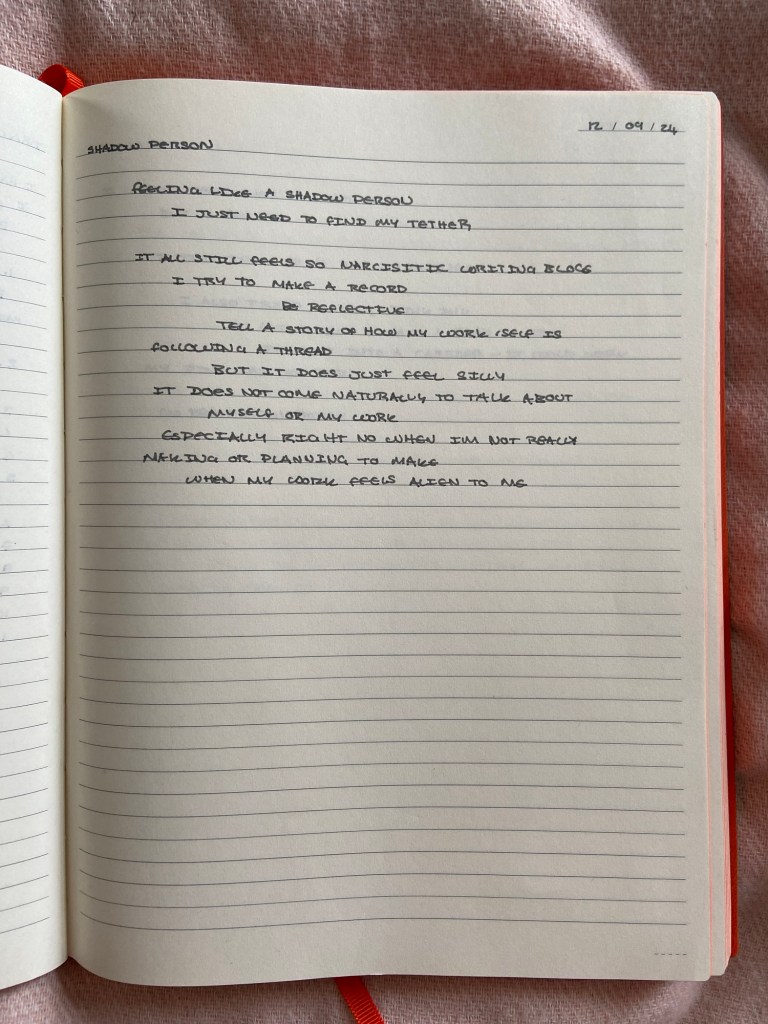 12 / 09 / 24
SHADOW PERSON
FEELING LIKE A SHADOW PERSON
I JUST NEED TO FIND MY TETHER
IT ALL STILL FEELS SO NARCISITIC WRITING BLOGS
I TRY TO MAKE A RECORD
BE REFLECTIVE
TELL A STORY OF HOW MY WORK /SELF IS
FOLLOWING A THREAD
BUT IT DOES JUST FEEL SILLY
IT DOES NOT COME NATURALLY TO TALK ABOUT
MYSELF OR MY WORK
ESPECIALLY RIGHT NO WHEN IM NOT REALLY
MAKING OR PLANNING TO MAKE
WHEN MY WORK FEELS ALIEN TO ME